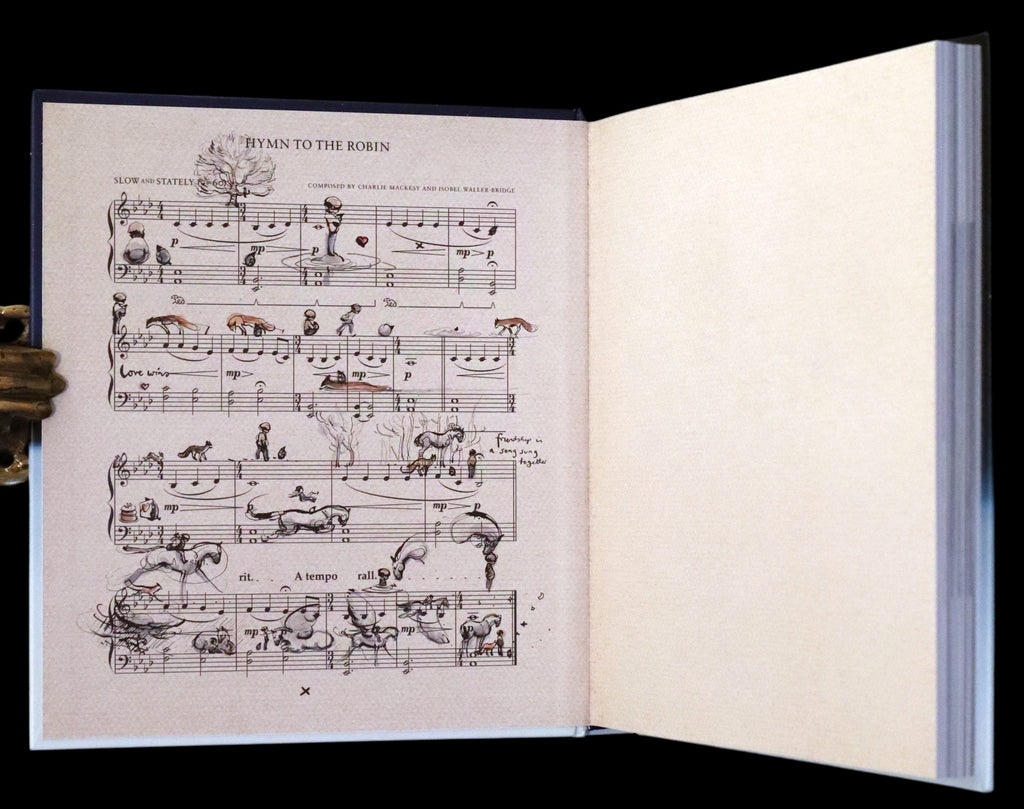 HYMN TO THE ROBIN
SLOW AND STATELY
COMPOSED BY CHARLIE MACKESY AND ISOBEL WALLER-BRIDGE
p mp p mp p
Ped Ped
Love wins mp mp p
friendship is
a song sung
together
mp mp p
rit. . . A tempo rall.
mp mp p